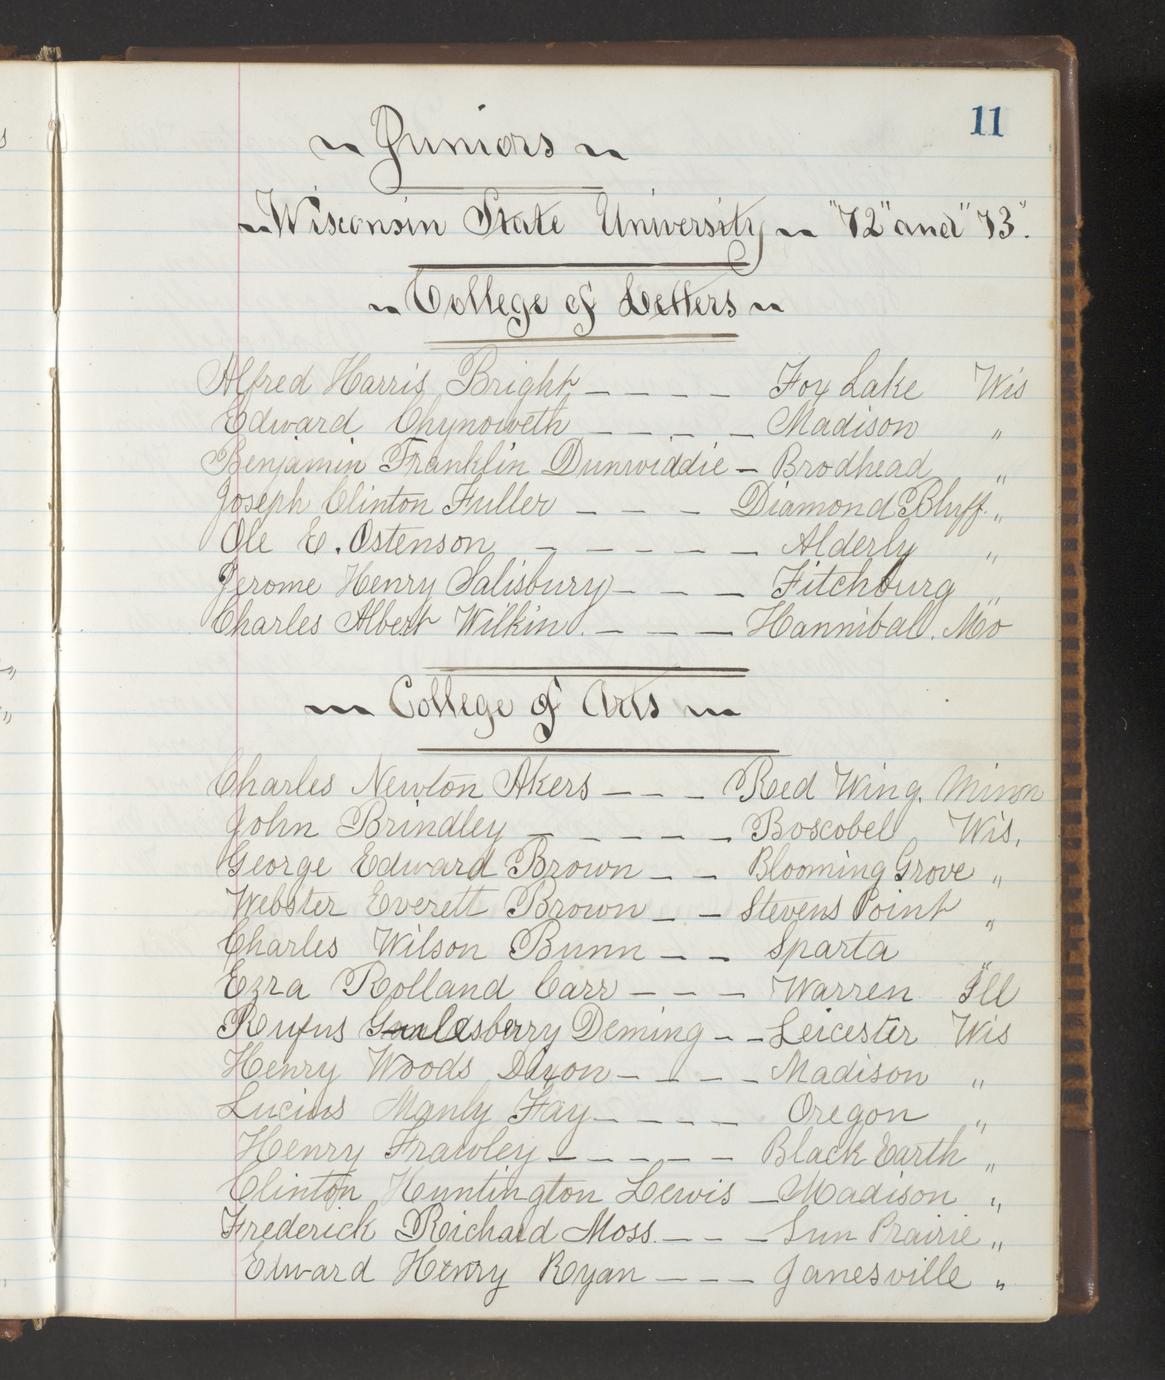 11
~ Juniors ~
~ Wisconsin State University ~ "72" and "73".
~ College of Letters ~
Alfred Harris Bright – – – – – Fox Lake Wis
Edward Chynoweth – – – – – Madison "
Benjamin Franklin Dunwiddie – Brodhead "
Joseph Clinton Fuller – – – – Diamond Bluff "
Ole E. Ostenson – – – – – – Alderly "
Jerome Henry Salisbury – – – – Fitchburg "
Charles Albert Wilkin. – – – Hannibal. Mo
~ College of Arts ~
Charles Newton Akers – – – Red Wing. Minn
John Brindley – – – – – – Boscobel Wis.
George Edward Brown – – Blooming Grove "
Webster Everett Brown – – – Stevens Point "
Charles Wilson Bunn – – – Sparta "
Ezra Rolland Carr – – – – Warren Ill
Rufus Deming – – Leicester Wis
Henry Woods Dixon – – – – – Madison "
Lucius Manly Fay – – – – – Oregon "
Henry Frawley – – – – – – Black Earth "
Clinton Huntington Lewis – Madison "
Frederick Richard Moss. – – – – Sun Prairie "
Edward Henry Ryan – – – – Janesville "